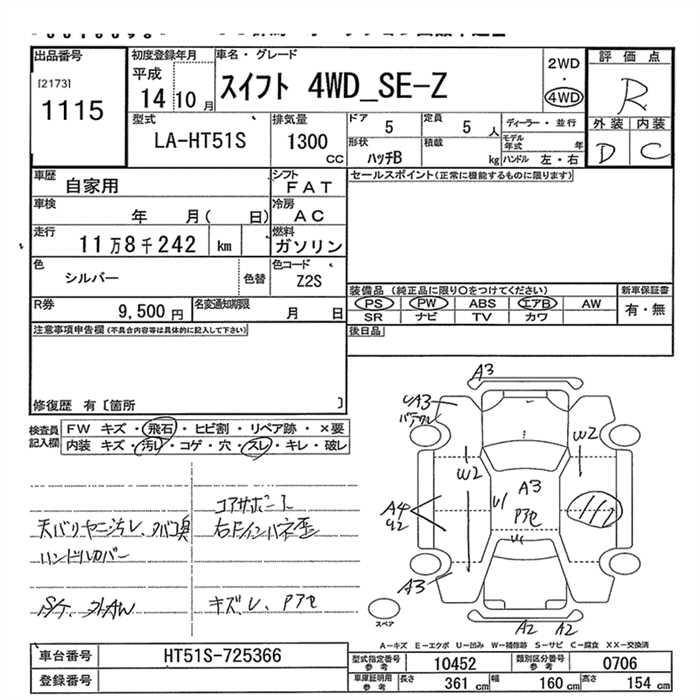 出品番号
[2173]
1115
初度登録年月
平成
14 10 月
車名・グレード
スイフト 4WD_SE-Z
2WD
・
4WD
評 価 点
R
外装 内装
D C
型式
LA-HT51S
排気量
1300
CC
ドア
5
定員
5 人
ディーラー・並行
形状
ハッチB
積載
kg
モデル年式
年
ハンドル 左・右
車歴
自家用
シフト
FAT
セールスポイント(正常に機能するものに限ります)
車検
年 月( 日)
冷房
AC
走行
11万8千242 km
燃料
ガソリン
色
シルバー
色替
色コード
Z2S
装備品 (純正品に限り○をつけてください)
新車保証書
PS PW ABS エアB AW
有・無
SR ナビ TV カワ
R券
9,500 円
名変通知期限
月 日
後日品
注意事項申告欄(不具合内容等は具体的に記入して下さい)
修復歴 有〔箇所 〕
検査員記入欄
FW キズ・飛石・ヒビ割・リペア跡・×要
内装 キズ・汚レ・コゲ・穴・スレ・キレ・破レ
A3
A3
W2
W2
A3
Pアセ
U1
A4
A3
A2 A2
コアサポート
天バリヤニ汚レ、タバコ臭
右Fインパネ歪
ハンドルカバー
キズ、U、Pアセ
スペア
A－キズ E－エクボ U－凹み W－補修跡 S－サビ C－腐食 XX－交換済
車台番号
HT51S-725366
登録番号
型式指定番号
参考
10452
類別区分番号
参考
0706
車庫証明用
参考
長さ 361 cm
幅 160 cm
高さ 154 cm